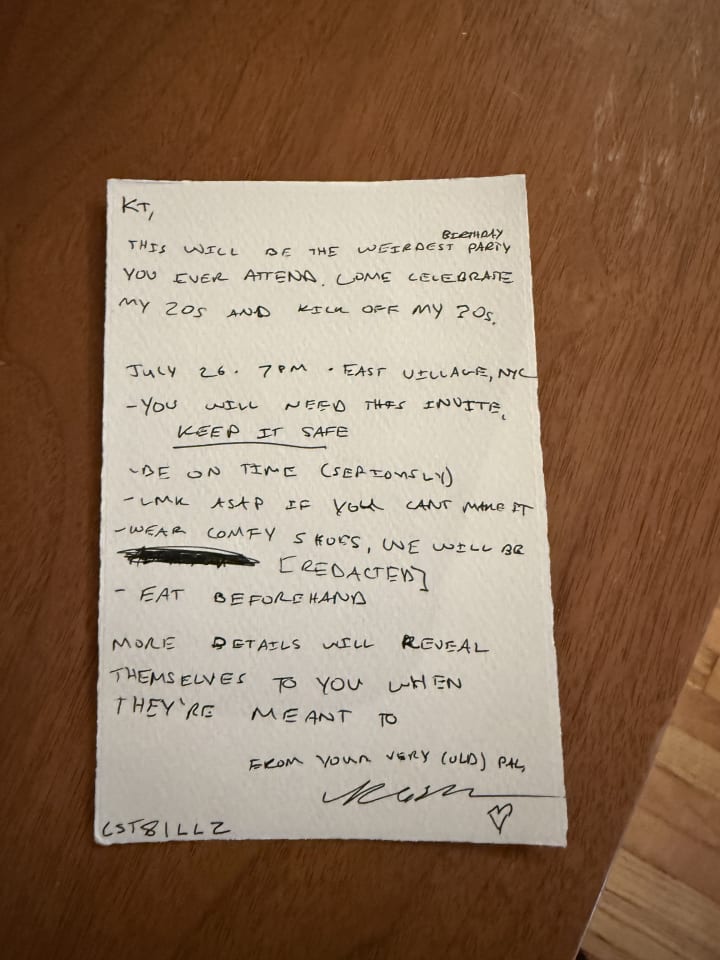 KT,
THIS WILL BE THE WEIRDEST BIRTHDAY PARTY
YOU EVER ATTEND. COME CELEBRATE
MY 20s AND KICK OFF MY 30s.
JULY 26 · 7PM · EAST VILLAGE, NYC
- YOU WILL NEED THIS INVITE,
KEEP IT SAFE
- BE ON TIME (SERIOUSLY)
- LMK ASAP IF YOU CANT MAKE IT
- WEAR COMFY SHOES, WE WILL BE
[REDACTED]
- EAT BEFOREHAND
MORE DETAILS WILL REVEAL
THEMSELVES TO YOU WHEN
THEY'RE MEANT TO
FROM YOUR VERY (OLD) PAL,
CST81LLZ